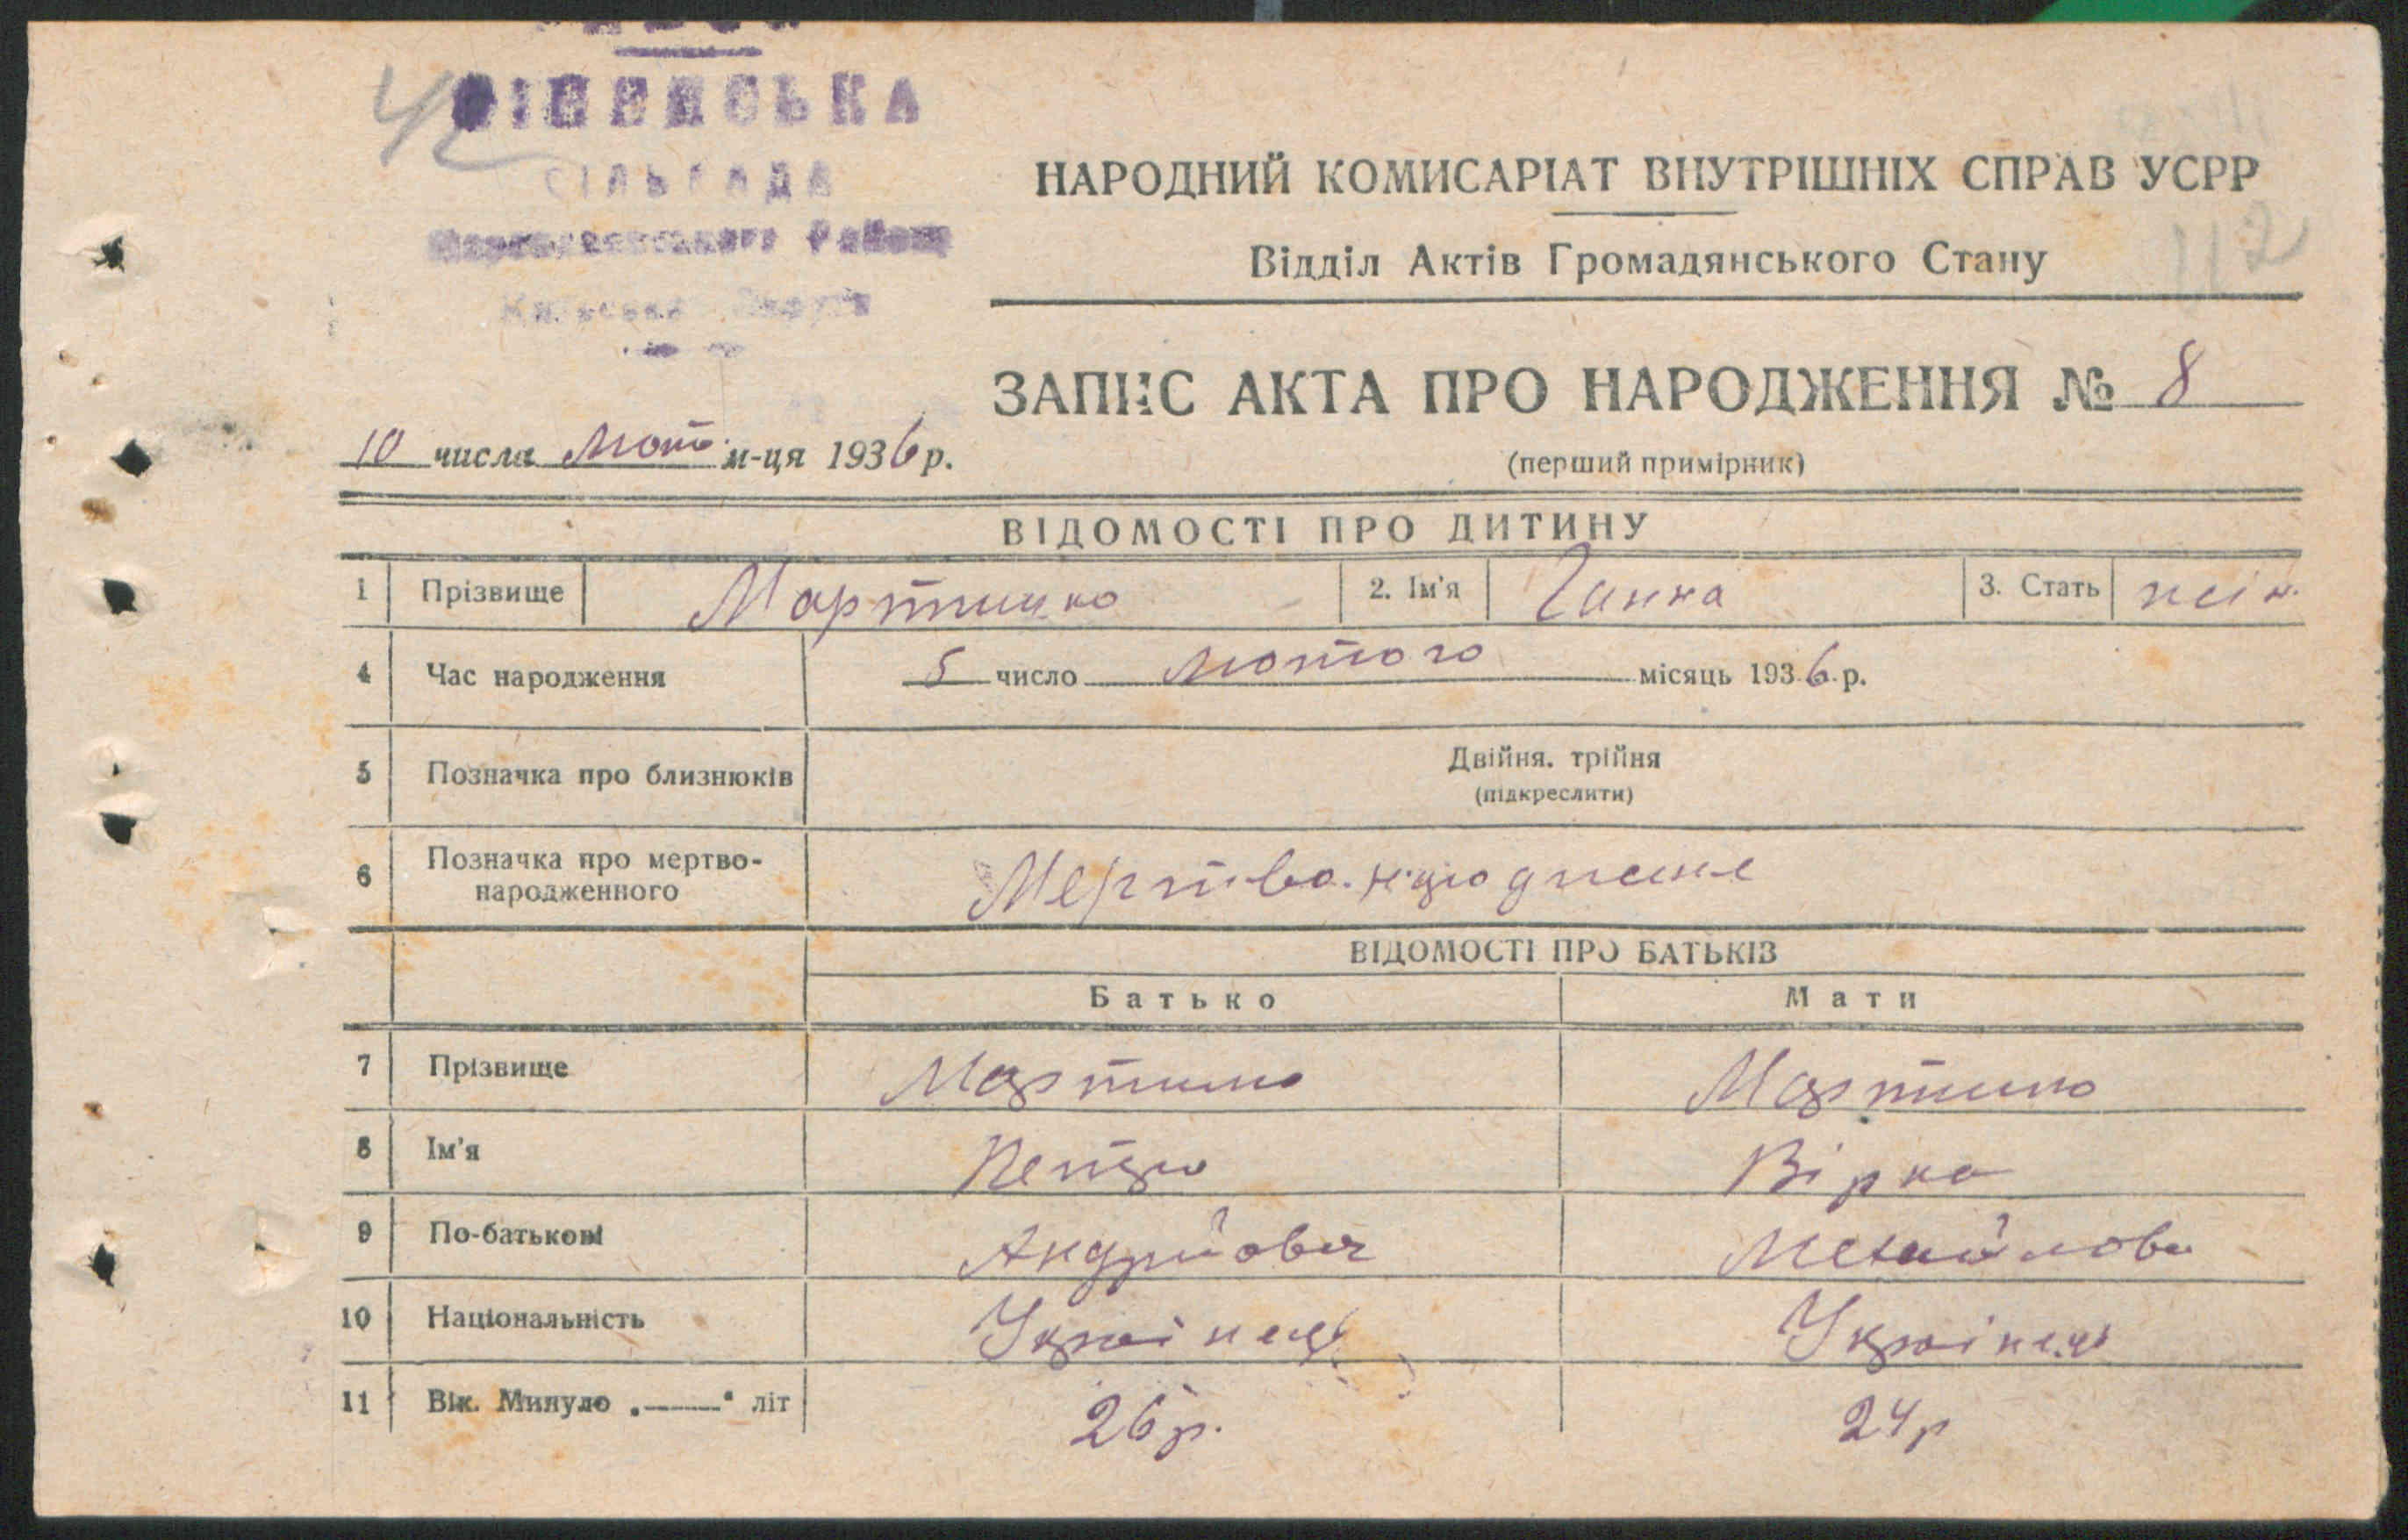 СІЛЬРАДА
Району
42
НАРОДНИЙ КОМИСАРІАТ ВНУТРІШНІХ СПРАВ УСРР
Відділ Актів Громадянського Стану
112
ЗАПИС АКТА ПРО НАРОДЖЕННЯ № 8
(перший примірник)
10 числа Лют. м-ця 1936 р.
ВІДОМОСТІ ПРО ДИТИНУ
1 Прізвище 2. Ім'я Ганна 3. Стать жін.
4 Час народження 5 число лютого місяць 1936 р.
5 Позначка про близнюків Двійня, трійня
(підкреслити)
6 Позначка про мертво-
народженного
ВІДОМОСТІ ПРО БАТЬКІВ
Батько Мати
7 Прізвище
8 Ім'я Петро Вірка
9 По-батькові Андрійович
10 Національність Українець Українець
11 Вік. Минуло „——“ літ 26 р. 24 р